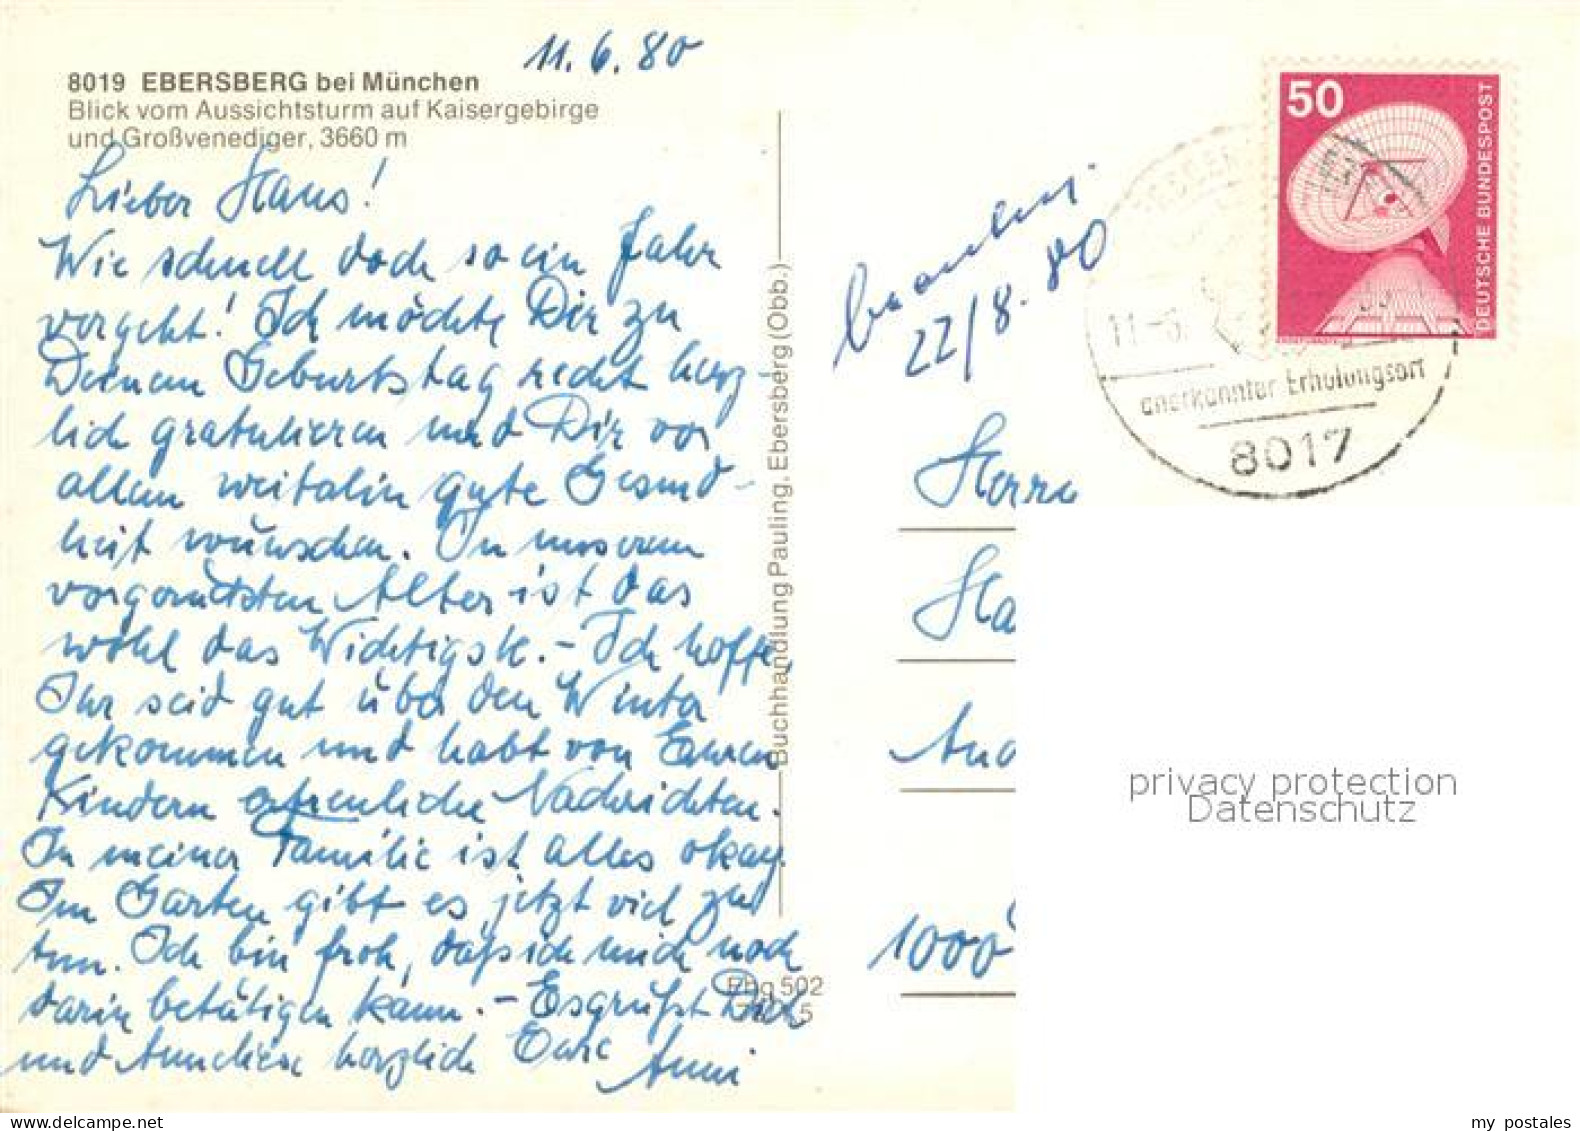 11.6.80
8019 EBERSBERG bei München
Blick vom Aussichtsturm auf Kaisergebirge
und Großvenediger, 3660 m
Lieber Hans!
Wie schnell doch so ein Jahr
vergeht! Ich möchte Dir zu
Deinem Geburtstag recht herz-
lich gratulieren und Dir vor
allem weiterhin gute Gesund-
heit wünschen. In unserem
vorgerückten Alter ist das
wohl das Wichtigste. - Ich hoffe,
Ihr seid gut über den Winter
gekommen und habt von Euren
Kindern erfreuliche Nachrichten.
In meiner Familie ist alles okay.
Im Garten gibt es jetzt viel zu
tun. Ich bin froh, daß ich mich noch
darin betätigen kann. - Es grüßt Dich
und Anneliese herzlich Eure Anni
Buchhandlung Pauling, Ebersberg (Obb.)
Phg 502
5
22/8.80
50
DEUTSCHE BUNDESPOST
11.-6.
anerkannter Erholungsort
8017
Herrn
Ha
And
1000
privacy protection
Datenschutz
my postales